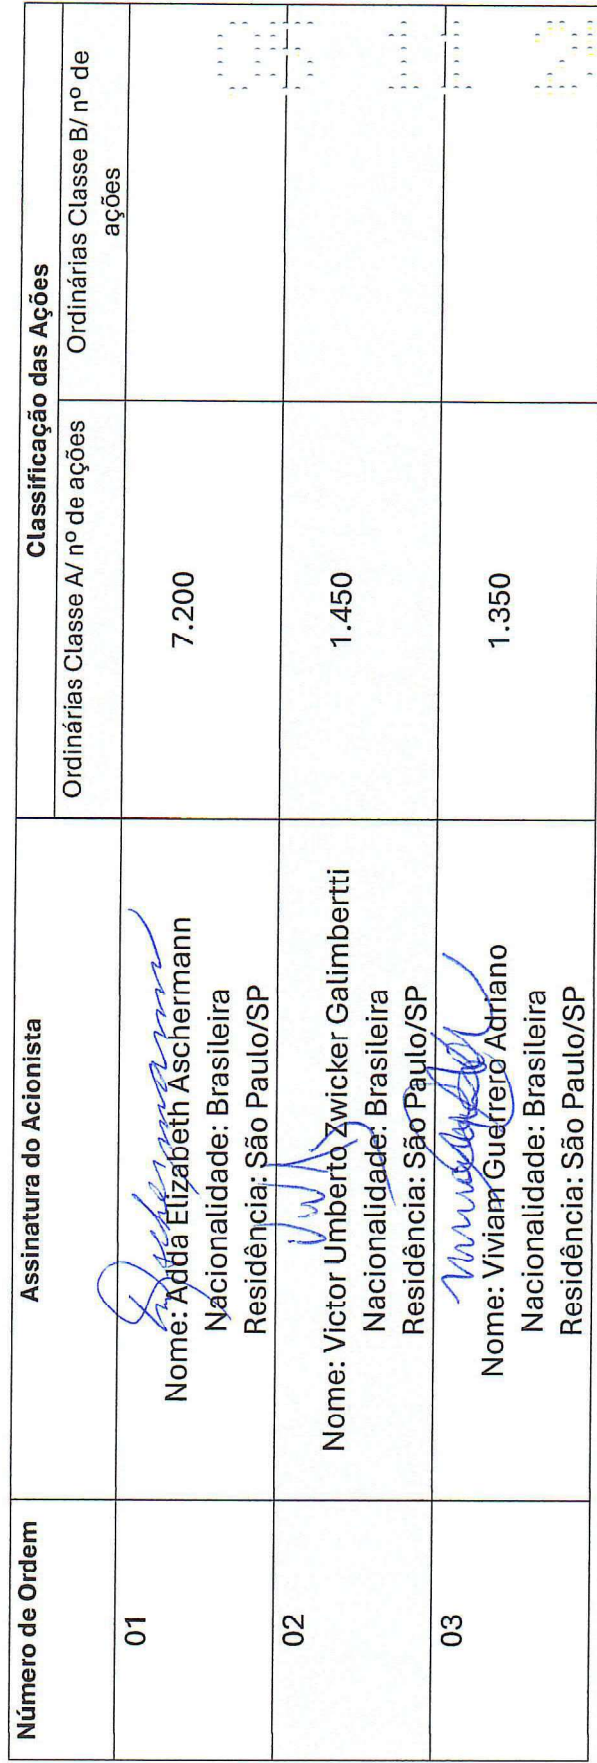 Número de Ordem
Assinatura do Acionista
Classificação das Ações
Ordinárias Classe A/ nº de ações
Ordinárias Classe B/ nº de
ações
01
Aschermann
Nome: Adda Elizabeth Aschermann
Nacionalidade: Brasileira
Residência: São Paulo/SP
7.200
02
Nome: Victor Umberto Zwicker Galimbertti
Nacionalidade: Brasileira
Residência: São Paulo/SP
1.450
03
Nome: Viviam Guerrero Adriano
Nacionalidade: Brasileira
Residência: São Paulo/SP
1.350